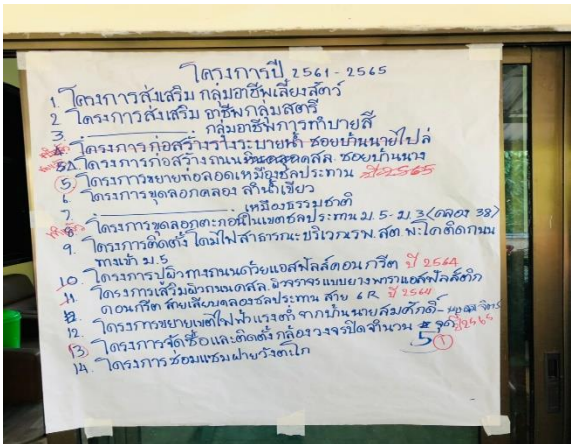 โครงการปี 2561 - 2565
1. โครงการส่งเสริม กลุ่มอาชีพเลี้ยงสัตว์
2 โครงการส่งเสริม อาชีพกลุ่มสตรี
3. กลุ่มอาชีพการทำบายสี
4. โครงการก่อสร้างรางระบายน้ำ ซอยบ้านนายไปล่
5 โครงการก่อสร้างถนน คสล. ซอยบ้านนาง
5. โครงการขยายท่อลอดเหมืองชลประทาน ปี 2565
6 โครงการขุดลอกคลอง ลำน้ำเขียว
7. เหมืองธรรมชาติ
8 โครงการขุดลอกตะกอนในเขตชลประทาน ม.5 - ม.3 (คลอง 38)
9. โครงการติดตั้ง โคมไฟสาธารณะบริเวณรพ.สต. พะโคติดถนน
ทางเข้า ม.5
10. โครงการปูผิวทางถนนด้วยแอสฟัลส์คอนกรีต ปี 2564
11 โครงการเสริมผิวถนนคสล. ผิวจราจรแบบยางพาราแอสฟัลส์ติก
คอนกรีต สายเลียบคลองชลประทาน สาย 6R ปี 2564
12. โครงการขยายเขตไฟฟ้าแรงต่ำ จากบ้านนายสมศักดิ์ -
13. โครงการจัดซื้อและติดตั้ง กล้องวงจรปิดจำนวน 5 จุด ปี 2565
14. โครงการซ่อมแซมฝายวังตะโก